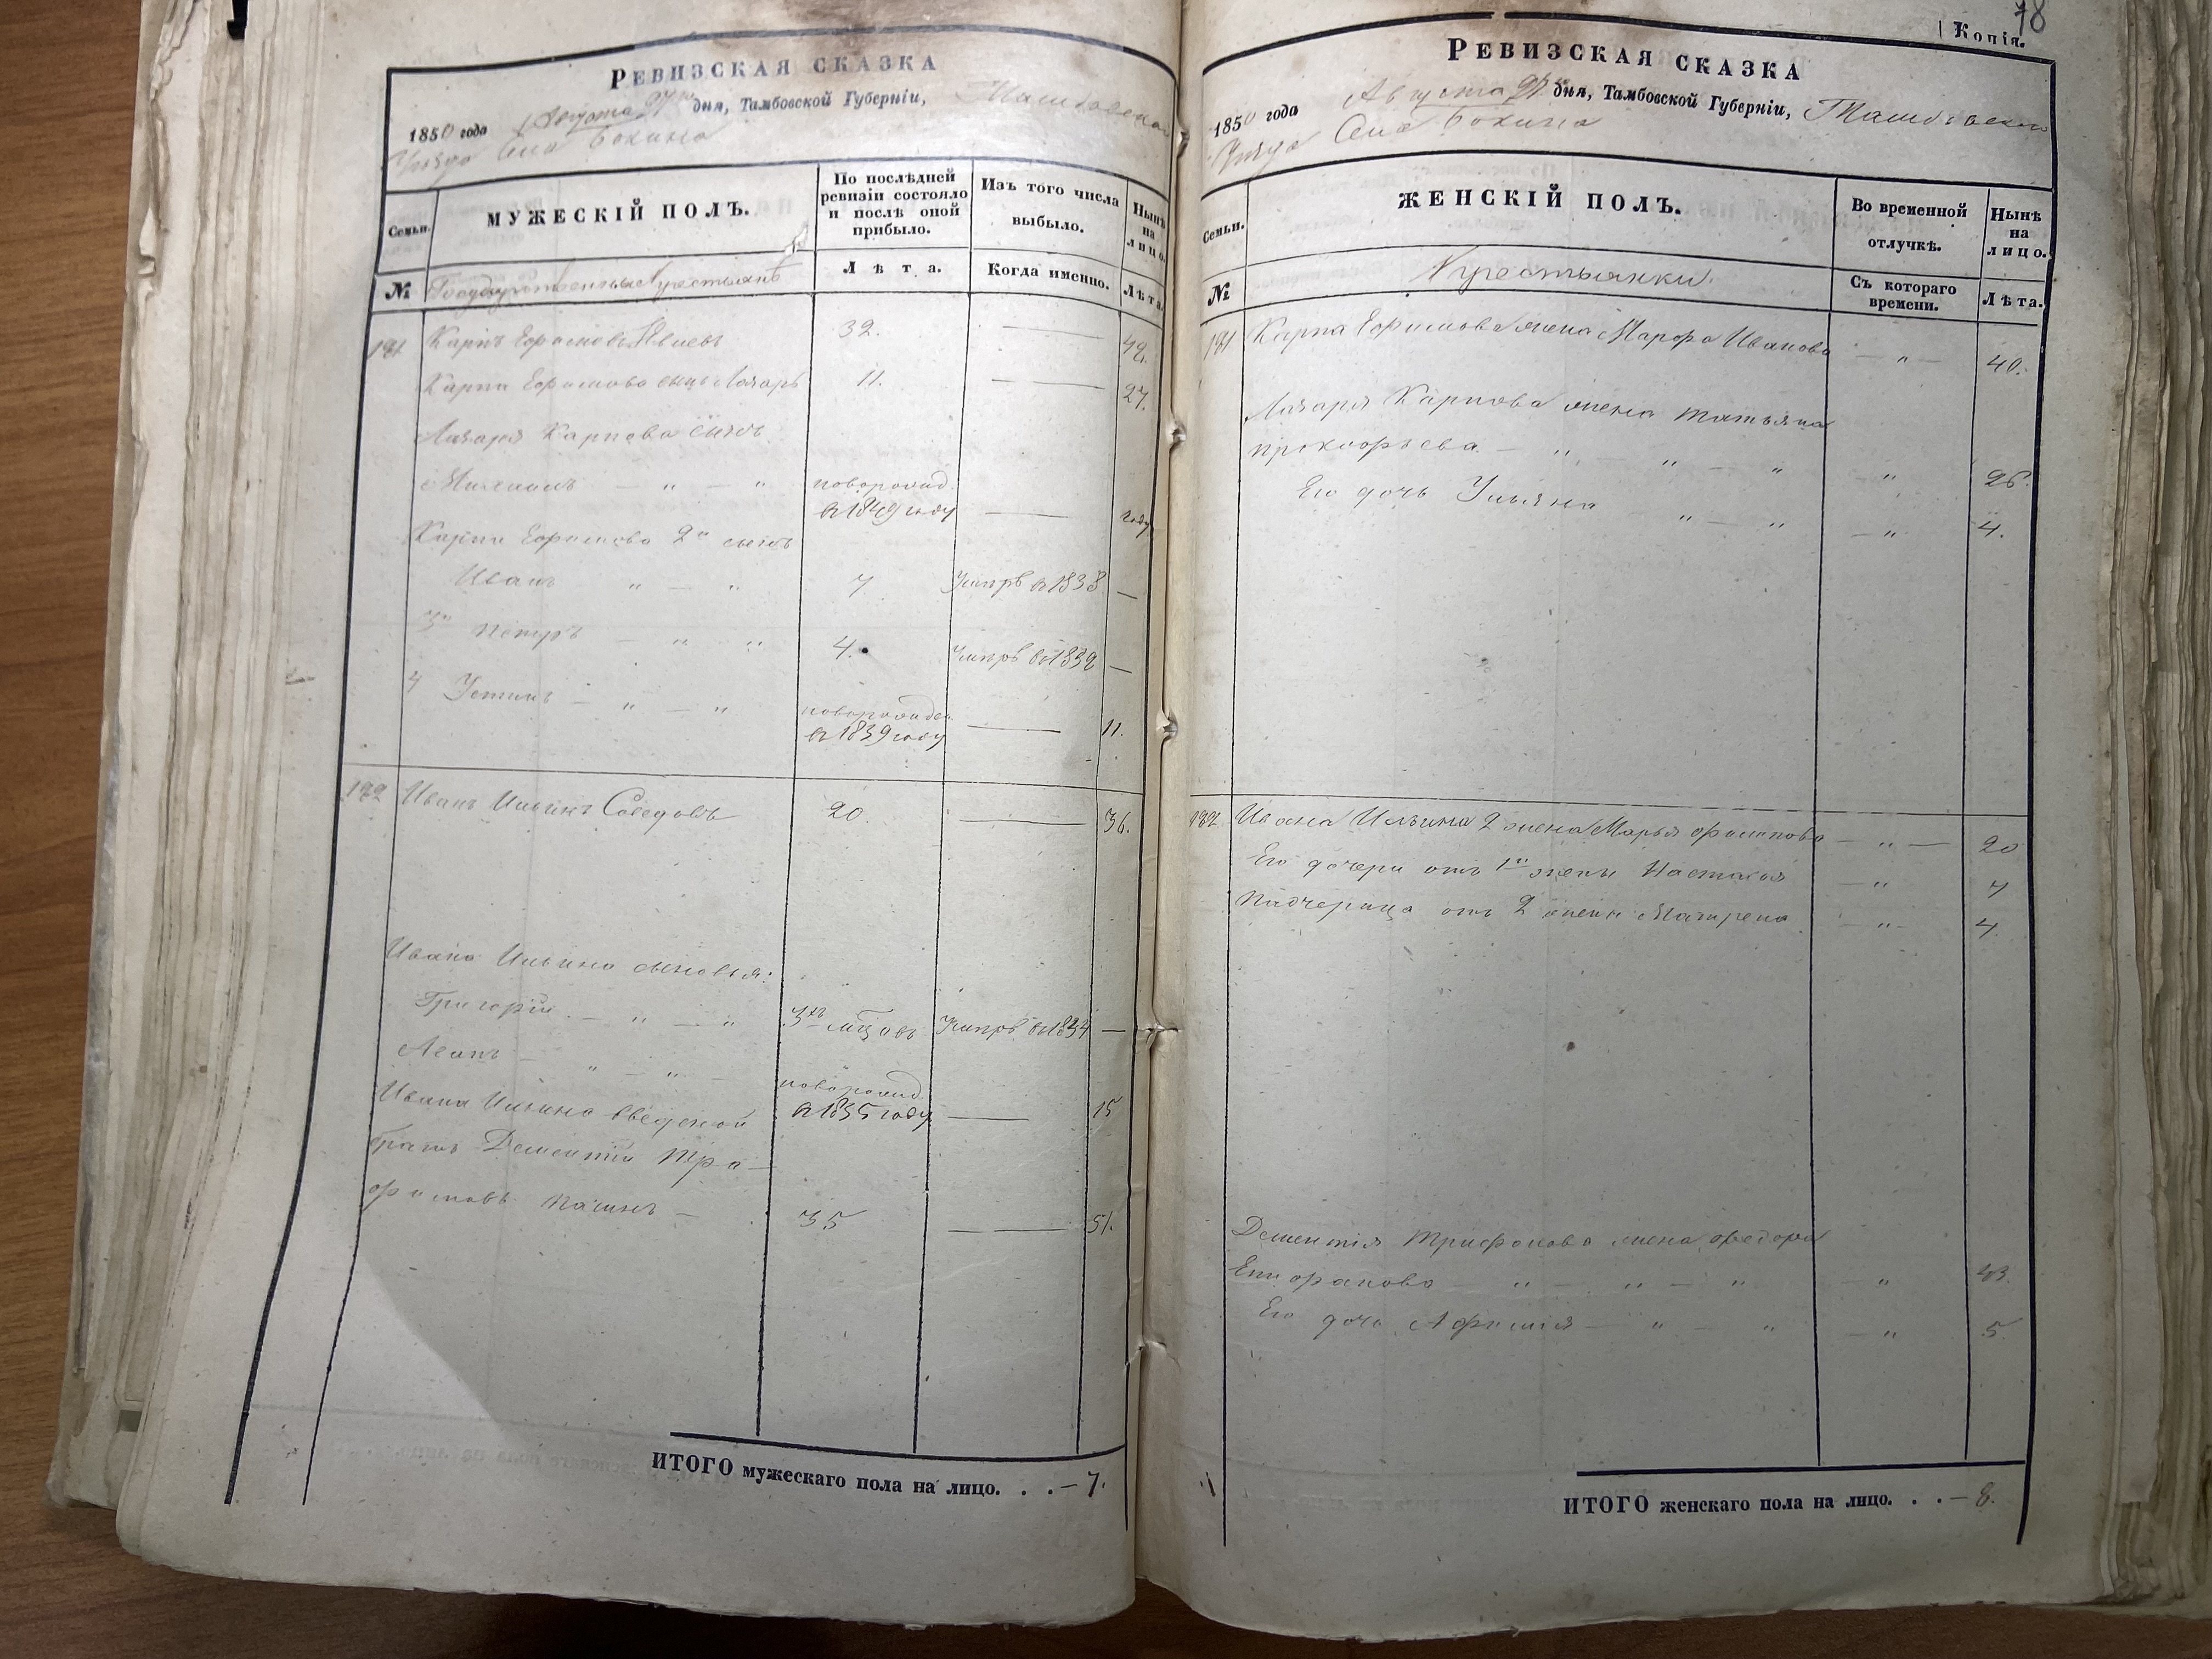 РЕВИЗСКАЯ СКАЗКА
1850 года Августа 27 дня, Тамбовской Губерніи,
Уезда Села Бокина
Семьи.
МУЖЕСКІЙ ПОЛЪ.
По послѣдней ревизіи состояло и послѣ оной прибыло.
Изъ того числа выбыло.
Нынѣ на лицо.
№
Государственные Крестьяне
Лѣта.
Когда именно.
Лѣта.
181 Карпъ Ефимовъ 32. — 48.
Карпа Ефимова сынъ Лазарь 11. — 27.
Лазаря Карпова сынъ
— " — " новорожд.
въ 1849 году — году
Карпа Ефимова 2й сынъ
Иванъ " — " 7 Умеръ въ 1838 —
3й Петръ — " — " 4. Умеръ въ 1839 —
4 Устинъ — " — " новорожден
въ 1839 году — 11.
182 Иванъ Ильинъ Соседовъ 20. — 36.
Ивана Ильина сыновья:
Григорій — " — " 3хъ мцовъ Умеръ въ 1834 —
— " — " — новорожд.
въ 1835 году — 15
Ивана Ильина сведеной
братъ Дементій Три-
фоновъ 35 — 51.
ИТОГО мужескаго пола на лицо. . . — 7.
78
Копія.
РЕВИЗСКАЯ СКАЗКА
1850 года Августа 27 дня, Тамбовской Губерніи,
Уезда Села Бокина
Семьи.
ЖЕНСКІЙ ПОЛЪ.
Во временной отлучкѣ.
Нынѣ на лицо.
№
Крестьянки.
Съ котораго времени.
Лѣта.
181 Карпа Ефимова жена Марфа Иванова — " — 40.
Лазаря Карпова жена Татьяна
Прокофьева — " — " — " " 26.
Его дочь Ульяна " — " — " 4.
182 Ивана Ильина 2 жена Марья Филипова — " — 20
Его дочери отъ 1й жены Настасья — " 7
Падчерица отъ 2 жены Матрена — " — 4.
Дементія Трифонова жена Федора
— " — " — " "
Его дочь Афимія — " — " — " 5.
ИТОГО женскаго пола на лицо. . . — 8.